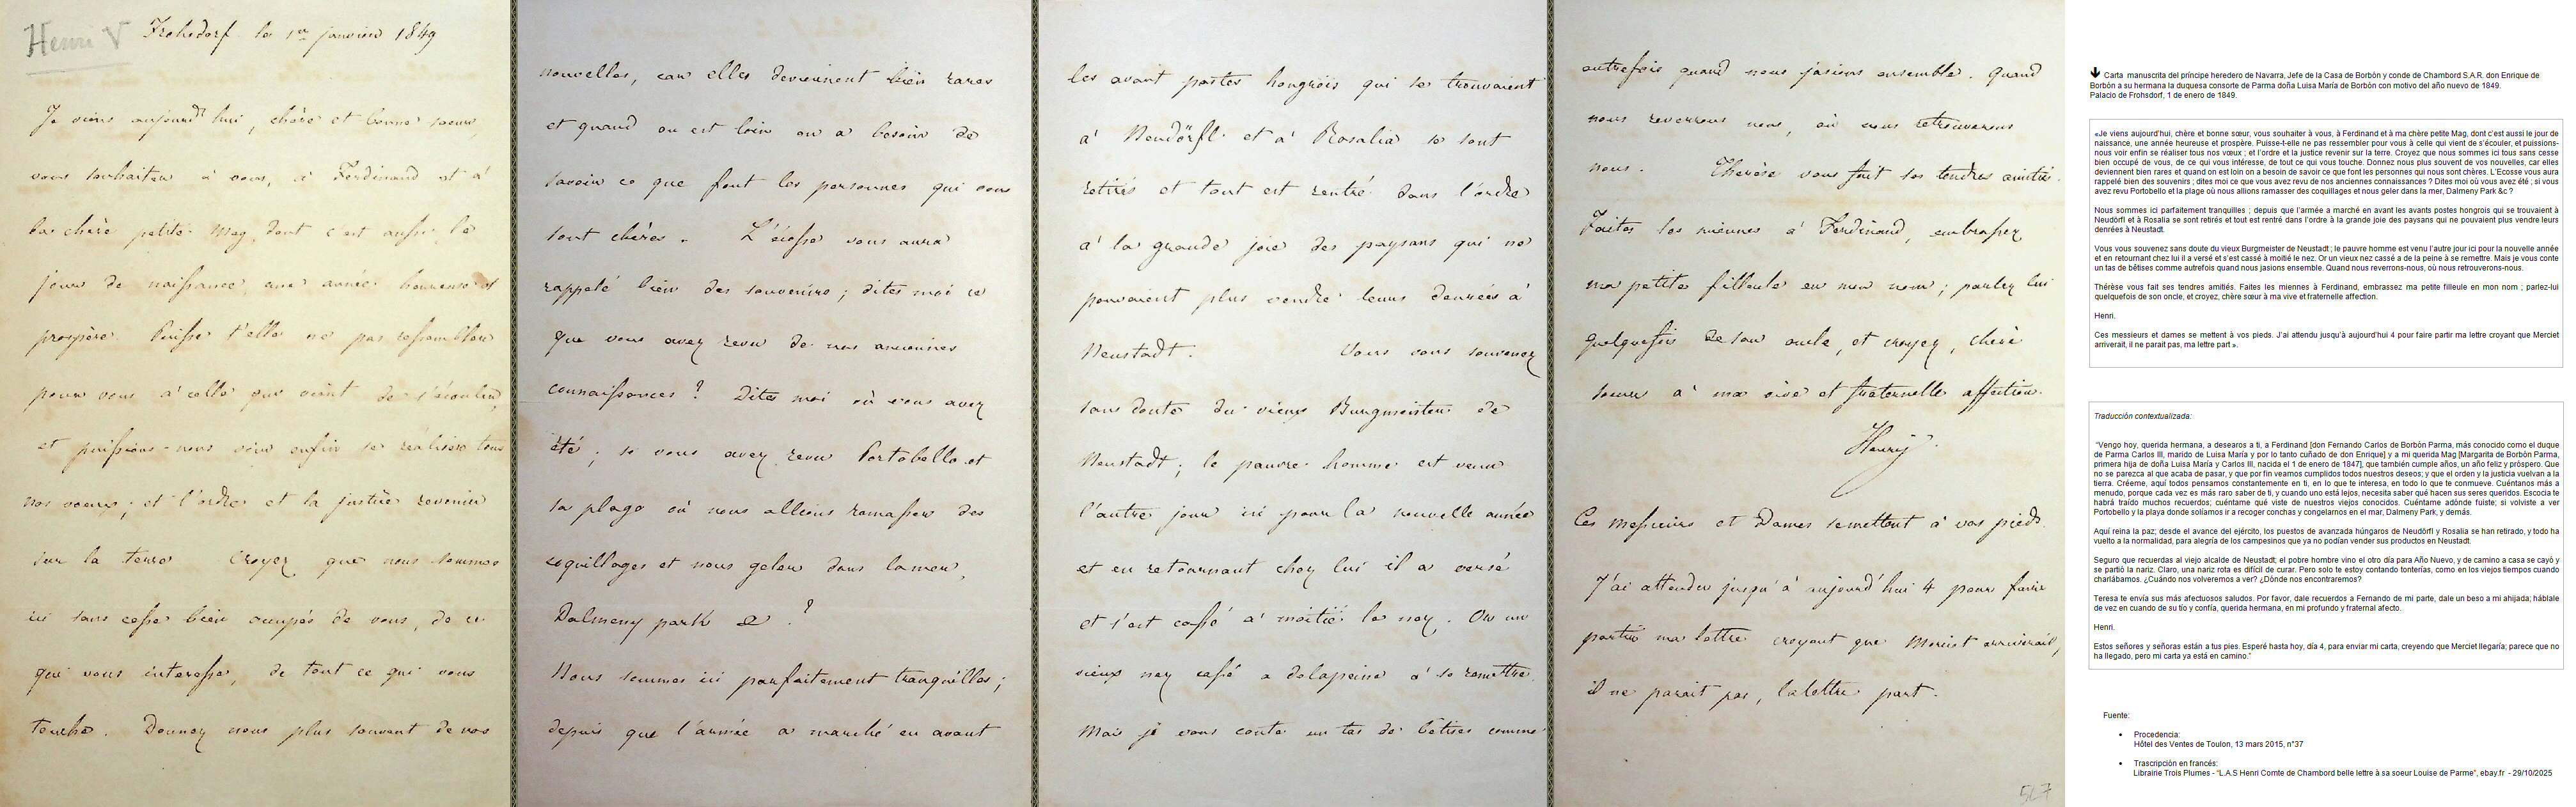 Henri V
Frohsdorf le 1er janvier 1849
Je viens aujourd'hui, chère et bonne soeur
vous souhaiter à vous, à Ferdinand et à
la chère petite Mag, dont c'est aussi le
jour de naissance, une année heureuse et
prospère. Puisse t'elle ne pas ressembler
pour vous à celle qui vient de s'écouler,
et puissions-nous voir enfin se réaliser tous
nos voeux; et l'ordre et la justice revenir
sur la terre. Croyez que nous sommes
ici sans cesse bien occupés de vous, de ce
qui vous intéresse, de tout ce qui vous
touche. Donnez nous plus souvent de vos
nouvelles, car elles deviennent bien rares
et quand on est loin on a besoin de
savoir ce que font les personnes qui nous
sont chères. L'écosse vous aura
rappelé bien des souvenirs; dites moi ce
que vous avez revu de nos anciennes
connaissances? Dites moi où vous avez
été; si vous avez revu Portobello et
la plage où nous allions ramasser des
coquillages et nous geler dans la mer,
Dalmeny park &?
Nous sommes ici parfaitement tranquilles;
depuis que l'armée a marché en avant
les avant postes hongrois qui se trouvaient
à Neudörfl et à Rosalia se sont
retirés et tout est rentré dans l'ordre
à la grande joie des paysans qui ne
pouvaient plus vendre leurs denrées à
Neustadt. Vous vous souvenez
sans doute du vieux Burgmeister de
Neustadt; le pauvre homme est venu
l'autre jour ici pour la nouvelle année
et en retournant chez lui il a versé
et s'est cassé à moitié le nez. Or un
vieux nez cassé a de la peine à se remettre.
Mais je vous conte un tas de bêtises comme
autrefois quand nous jasions ensemble. Quand
nous reverrons nous, où nous retrouverons
nous. Thérèse vous fait ses tendres amitiés.
Faites les miennes à Ferdinand, embrassez
ma petite filleule en mon nom; parlez lui
quelquefois de son oncle, et croyez, chère
soeur à ma vive et fraternelle affection.
Henry
Ces messieurs et Dames se mettent à vos pieds.
J'ai attendu jusqu'à aujourd'hui 4 pour faire
partir ma lettre croyant que Merciet arriverait,
il ne parait pas, la lettre part.
567
🡫 Carta manuscrita del príncipe heredero de Navarra, Jefe de la Casa de Borbón y conde de Chambord S.A.R. don Enrique de
Borbón a su hermana la duquesa consorte de Parma doña Luisa María de Borbón con motivo del año nuevo de 1849.
Palacio de Frohsdorf, 1 de enero de 1849.
«Je viens aujourd'hui, chère et bonne sœur, vous souhaiter à vous, à Ferdinand et à ma chère petite Mag, dont c'est aussi le jour de
naissance, une année heureuse et prospère. Puisse-t-elle ne pas ressembler pour vous à celle qui vient de s'écouler, et puissions-
nous voir enfin se réaliser tous nos vœux ; et l'ordre et la justice revenir sur la terre. Croyez que nous sommes ici tous sans cesse
bien occupé de vous, de ce qui vous intéresse, de tout ce qui vous touche. Donnez nous plus souvent de vos nouvelles, car elles
deviennent bien rares et quand on est loin on a besoin de savoir ce que font les personnes qui nous sont chères. L'Ecosse vous aura
rappelé bien des souvenirs ; dites moi ce que vous avez revu de nos anciennes connaissances ? Dites moi où vous avez été ; si vous
avez revu Portobello et la plage où nous allions ramasser des coquillages et nous geler dans la mer, Dalmeny Park &c ?
Nous sommes ici parfaitement tranquilles ; depuis que l'armée a marché en avant les avants postes hongrois qui se trouvaient à
Neudörfl et à Rosalia se sont retirés et tout est rentré dans l'ordre à la grande joie des paysans qui ne pouvaient plus vendre leurs
denrées à Neustadt.
Vous vous souvenez sans doute du vieux Burgmeister de Neustadt ; le pauvre homme est venu l'autre jour ici pour la nouvelle année
et en retournant chez lui il a versé et s'est cassé à moitié le nez. Or un vieux nez cassé a de la peine à se remettre. Mais je vous conte
un tas de bêtises comme autrefois quand nous jasions ensemble. Quand nous reverrons-nous, où nous retrouverons-nous.
Thérèse vous fait ses tendres amitiés. Faites les miennes à Ferdinand, embrassez ma petite filleule en mon nom ; parlez-lui
quelquefois de son oncle, et croyez, chère sœur à ma vive et fraternelle affection.
Henri.
Ces messieurs et dames se mettent à vos pieds. J'ai attendu jusqu'à aujourd'hui 4 pour faire partir ma lettre croyant que Merciet
arriverait, il ne parait pas, ma lettre part ».
Traducción contextualizada:
"Vengo hoy, querida hermana, a desearos a ti, a Ferdinand [don Fernando Carlos de Borbón Parma, más conocido como el duque
de Parma Carlos III, marido de Luisa María y por lo tanto cuñado de don Enrique] y a mi querida Mag [Margarita de Borbón Parma,
primera hija de doña Luisa María y Carlos III, nacida el 1 de enero de 1847], que también cumple años, un año feliz y próspero. Que
no se parezca al que acaba de pasar, y que por fin veamos cumplidos todos nuestros deseos; y que el orden y la justicia vuelvan a la
tierra. Créeme, aquí todos pensamos constantemente en ti, en lo que te interesa, en todo lo que te conmueve. Cuéntanos más a
menudo, porque cada vez es más raro saber de ti, y cuando uno está lejos, necesita saber qué hacen sus seres queridos. Escocia te
habrá traído muchos recuerdos; cuéntame qué viste de nuestros viejos conocidos. Cuéntame adónde fuiste; si volviste a ver
Portobello y la playa donde solíamos ir a recoger conchas y congelarnos en el mar, Dalmeny Park, y demás.
Aquí reina la paz; desde el avance del ejército, los puestos de avanzada húngaros de Neudörfl y Rosalia se han retirado, y todo ha
vuelto a la normalidad, para alegría de los campesinos que ya no podían vender sus productos en Neustadt.
Seguro que recuerdas al viejo alcalde de Neustadt; el pobre hombre vino el otro día para Año Nuevo, y de camino a casa se cayó y
se partió la nariz. Claro, una nariz rota es difícil de curar. Pero solo te estoy contando tonterías, como en los viejos tiempos cuando
charlábamos. ¿Cuándo nos volveremos a ver? ¿Dónde nos encontraremos?
Teresa te envía sus más afectuosos saludos. Por favor, dale recuerdos a Fernando de mi parte, dale un beso a mi ahijada; háblale
de vez en cuando de su tío y confía, querida hermana, en mi profundo y fraternal afecto.
Henri.
Estos señores y señoras están a tus pies. Esperé hasta hoy, día 4, para enviar mi carta, creyendo que Merciet llegaría; parece que no
ha llegado, pero mi carta ya está en camino."
Fuente:
• Procedencia:
Hôtel des Ventes de Toulon, 13 mars 2015, n°37
• Trascripción en francés:
Librairie Trois Plumes - "L.A.S Henri Comte de Chambord belle lettre à sa soeur Louise de Parme", ebay.fr - 29/10/2025